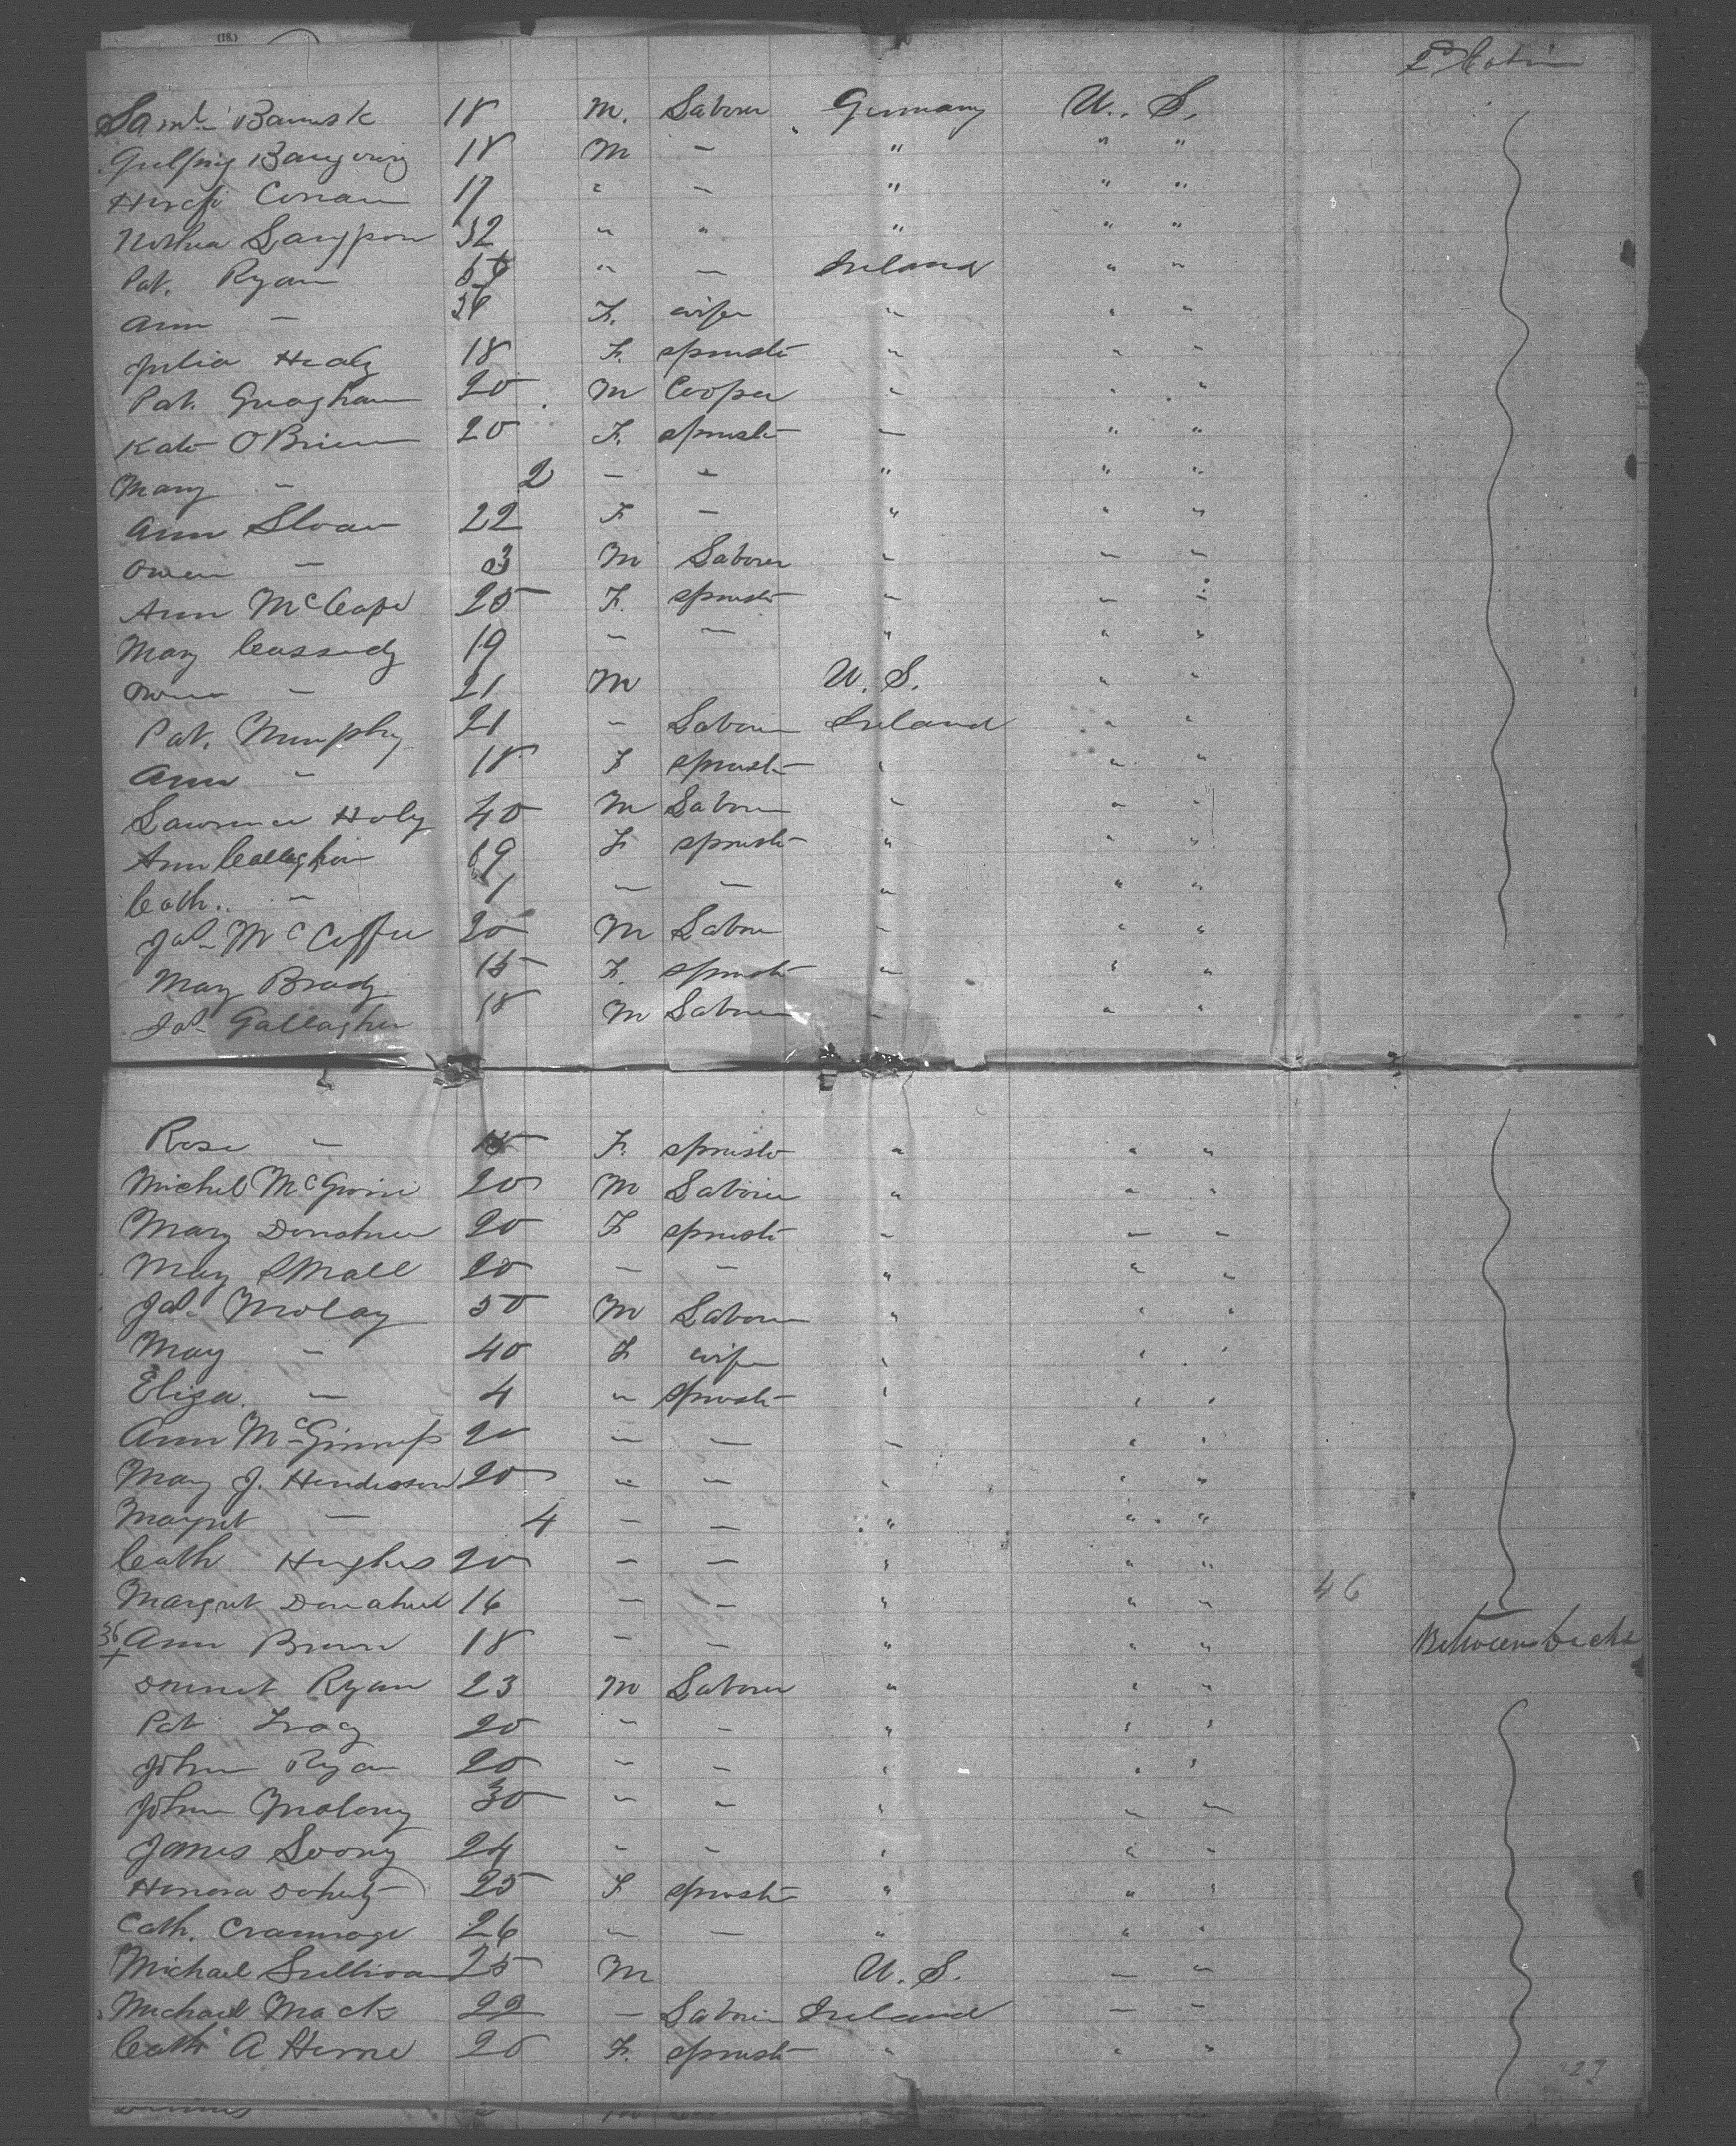 (18.)
2d Cabin
Saml. Baumsk 18 M. Laborer Germany U. S.
18 M – " " "
Conan 17 " – " " "
32 " " " " "
Pat. Ryan " – Ireland " "
Ann – 36 F. wife " " "
Julia Healy 18 F. spinster " " "
Pat. Gaughan 20 M Cooper " " "
Kate O'Brien 20 F. spinster – " "
Mary – 2 – – " " "
Ann Sloan 22 F – " " "
Owen – 3 M Laborer " – –
Ann McCape 25 F. spinster " – –
Mary Cassady 19 – – " " "
Owen – 21 M U. S. " "
Pat. Murphy 21 – Laborer Ireland " "
Ann – 18 F spinster " " "
Lawrence Holy 40 M Laborer " " "
Ann Callaghan 69 F spinster " " "
Cath. – 1 – – " " "
Jas. McCaffre 20 M Labor – " "
Mary Brady 15 F. spinster – " "
Jas. Gallagher 18 M Laborer – " "
Rose – 15 F. spinster " " "
Michel McGwini 20 M Laborer " " "
Mary Donahue 20 F spinster – – –
May Small 20 – – " " "
Jas. Molay 50 M Laborer " " "
May – 40 F wife " " "
Eliza. – 4 " spinster " " "
Ann McGinness 20 – – – " "
Mary J. Henderson 20 – – " " "
Margret – 4 – – " " "
Cath Hughes 20 – – " " "
Margret Donahue 16 – – " " " 46
36 + Ann Brown 18 – – " " " Between Decks
Ryan 23 M Laborer " " "
Pat Tracy 20 – – " " "
John Ryan 20 – – " " "
John Malony 30 " – " – –
James Loony 24 " " " " "
Honora Doherty 25 F spinster " " "
Cath. Crammage 26 – – " " "
Michael Sullivan 25 M U. S. – "
Michael Mack 22 – Laborer Ireland – –
Cath A Herne 20 F. spinster " " "
227